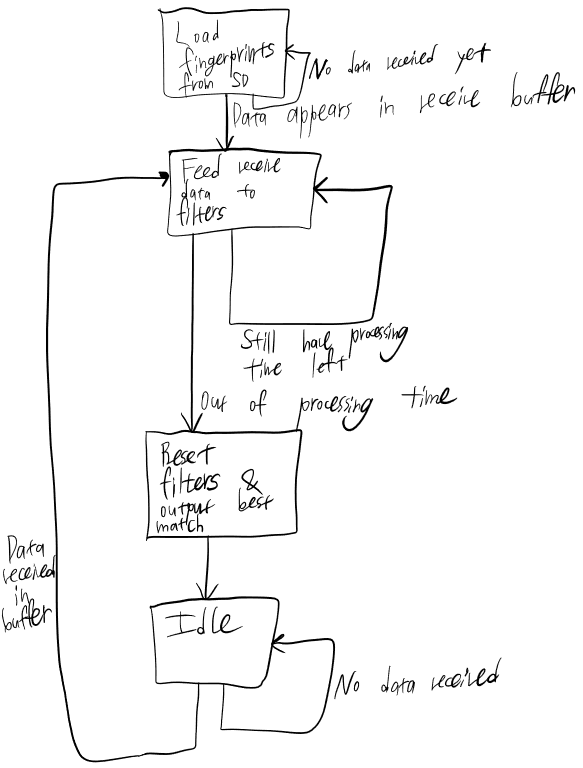 Load
fingerprints
from SD
No data received yet
Data appears in receive buffer
Feed receive
data to
filters
Still have processing
time left
Out of processing time
Reset
filters &
output best
match
Data
received
in
buffer
Idle
No data received